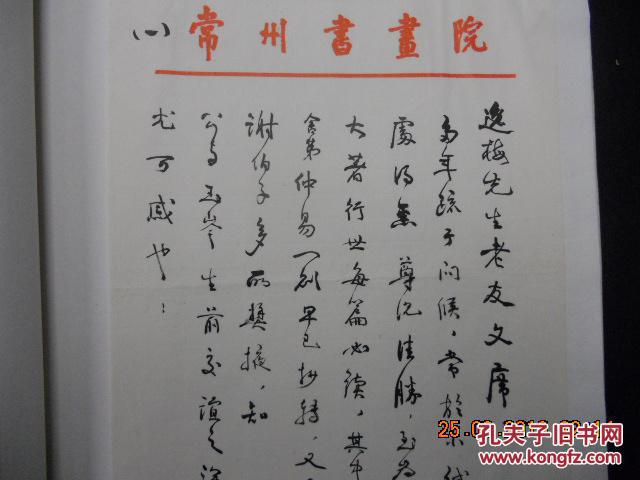 (一)
常州書畫院
逸梅先生老友文席
多年疏于问候,常於
處得悉尊况佳勝,至为
大著行世每篇必读,其中
舍弟仲易一则早已抄转,又
谢伯子多所奬掖,知
公与玉岑生前交谊之深
尤可感也:
25.0
孔夫子旧书网
www.kongfz.com